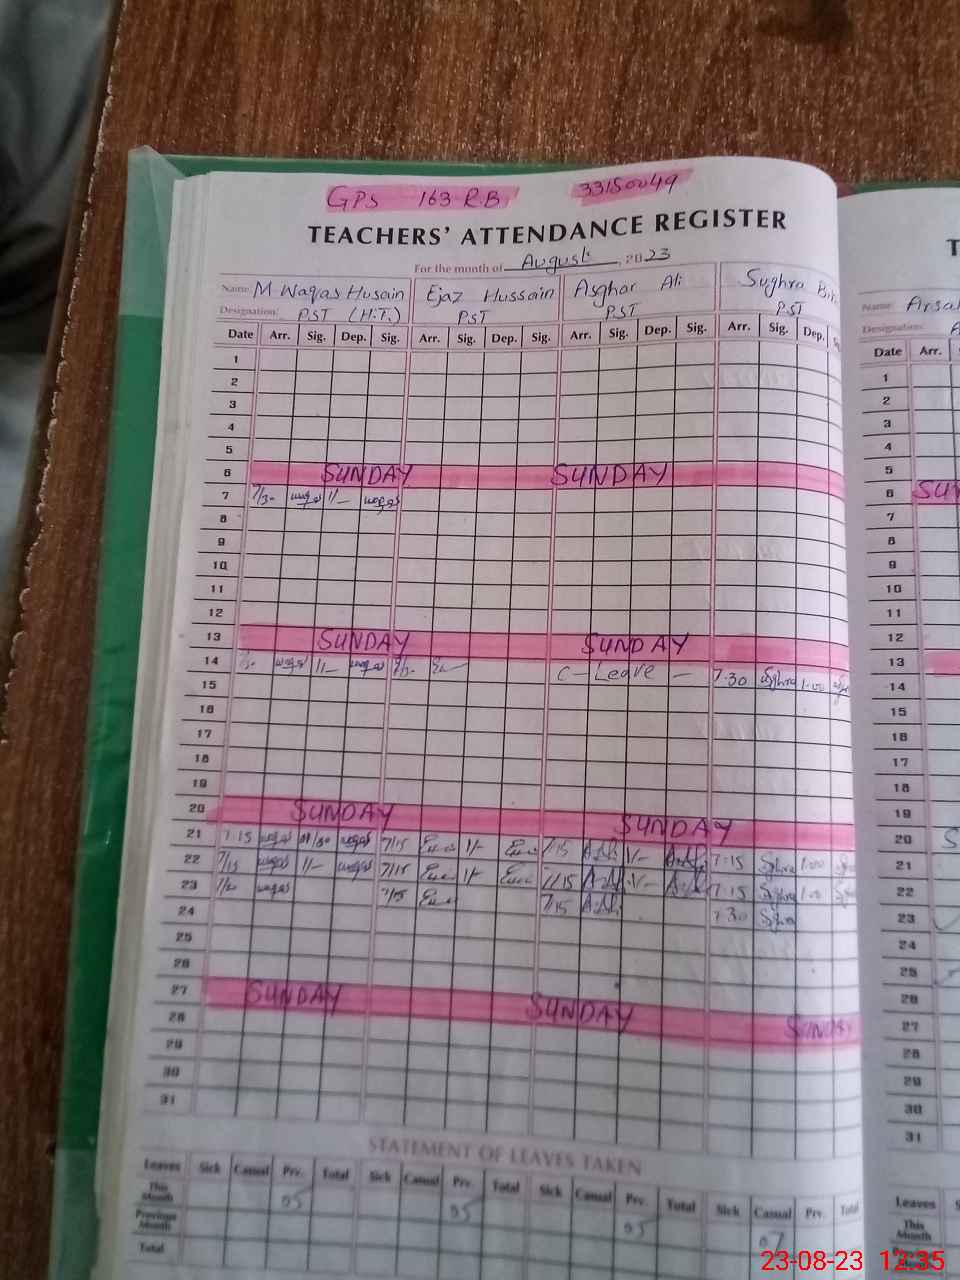 GPS 163-R.B 33150049
TEACHERS' ATTENDANCE REGISTER
For the month of August, 2023
Name: M Waqas Husain Ejaz Hussain Asghar Ali Sughra
Designation: PST (H.T.) PST PST PST
Date Arr. Sig. Dep. Sig. Arr. Sig. Dep. Sig. Arr. Sig. Dep. Sig. Arr. Sig. Dep.
1
2
3
4
5
6 SUNDAY SUNDAY
7 7/30 waqas 1/- waqas
8
9
10
11
12
13 SUNDAY SUNDAY
14 waqas 1/- waqas C-Leave - 7:30 Sghra 1:00
15
16
17
18
19
20 SUNDAY SUNDAY
21 7:15 waqas waqas 7/15 1/- 7/15 1/- 7:15 Sghra 1:00
22 7/15 waqas 1/- waqas 7/15 1/- 7/15 1/- 7:15 Sghra 1:00
23 waqas 7/15 7/15 7:30 Sghra
24
25
26
27 SUNDAY SUNDAY SUNDAY
28
29
30
31
STATEMENT OF LEAVES TAKEN
Leaves Sick Casual Prv. Total Sick Casual Prv. Total Sick Casual Prv. Total Sick Casual Prv. Total
This Month 05 05 05 07
Previous Month
Total
Name:
Designation:
Date Arr.
1
2
3
4
5
6
7
8
9
10
11
12
13
14
15
16
17
18
19
20
21
22
23
24
25
26
27
28
29
30
31
Leaves
This Month
23-08-23 12:35